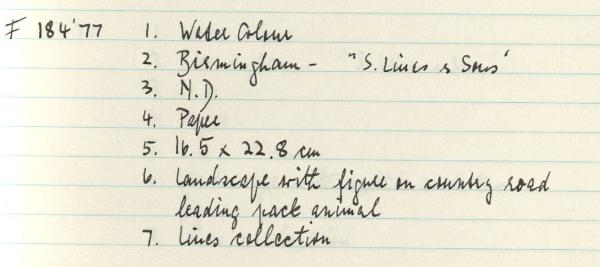 F 184'77 1. Water Colour
2. Birmingham - "S. Lines & Sons"
3. N.D.
4. Paper
5. 16.5 x 22.8 cm
6. Landscape with figure on country road
leading pack animal
7. Lines collection